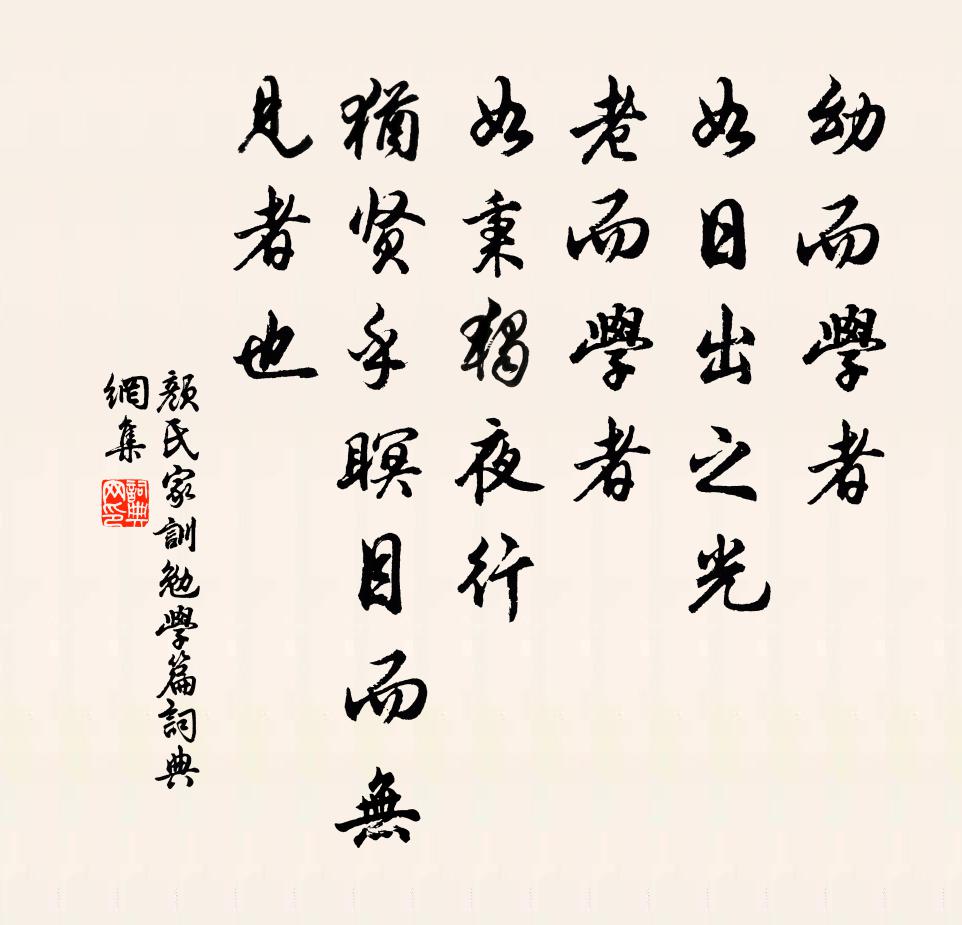 幼而學者
如日出之光
老而學者
如秉燭夜行
猶贤乎瞑目而無
見者也
顏氏家訓勉學篇詞典
網集
詞典
网印